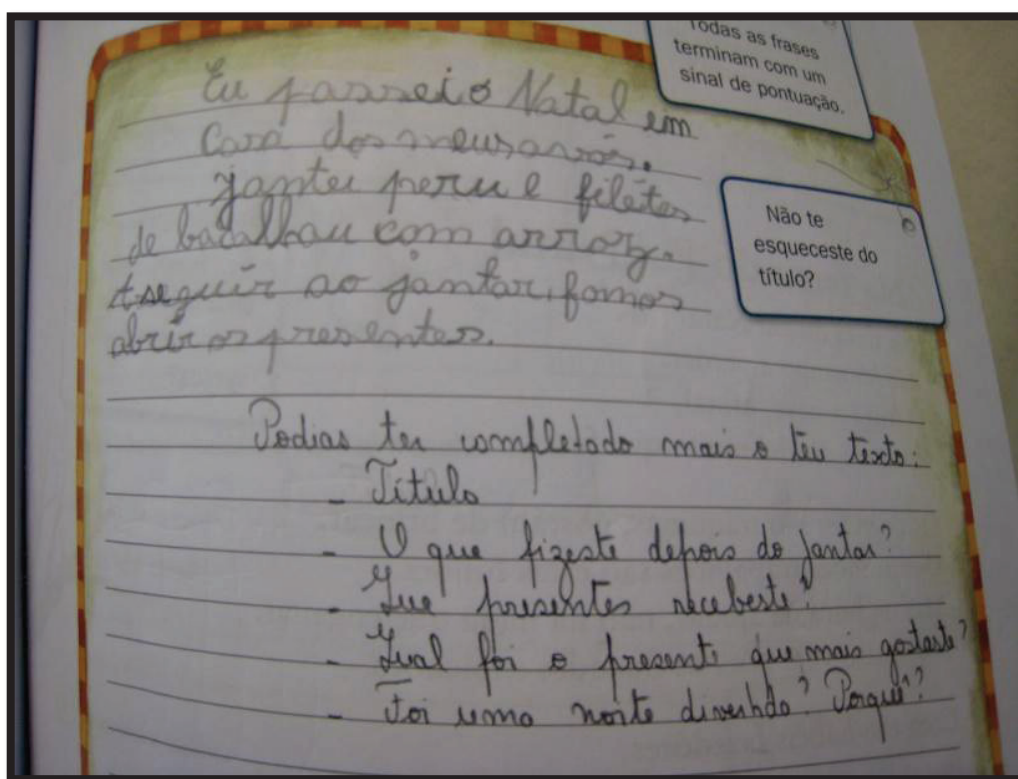 Todas as frases
terminam com um
sinal de pontuação.
Eu passei o Natal em
casa dos meus avós.
jantei peru e filétes
de bacalhau com arroz.
A seguir ao jantar, fomos
abrir os presentes.
Não te
esqueceste do
título?
Podias ter completado mais o teu texto:
- Título
- O que fizeste depois do jantar?
- Que presentes recebeste?
- Qual foi o presente que mais gostaste?
- Foi uma noite divertida? Porquê?